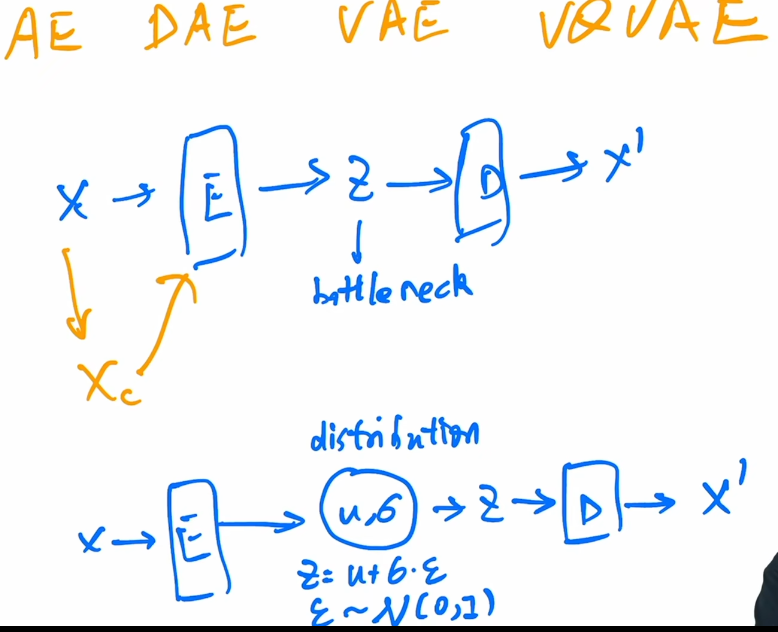 AE DAE VAE VQVAE
X → E → Z → D → X'
bottleneck
Xc
distribution
X → E → u,6 → Z → D → X'
Z = u+6·ε
ε ~ N(0,I)